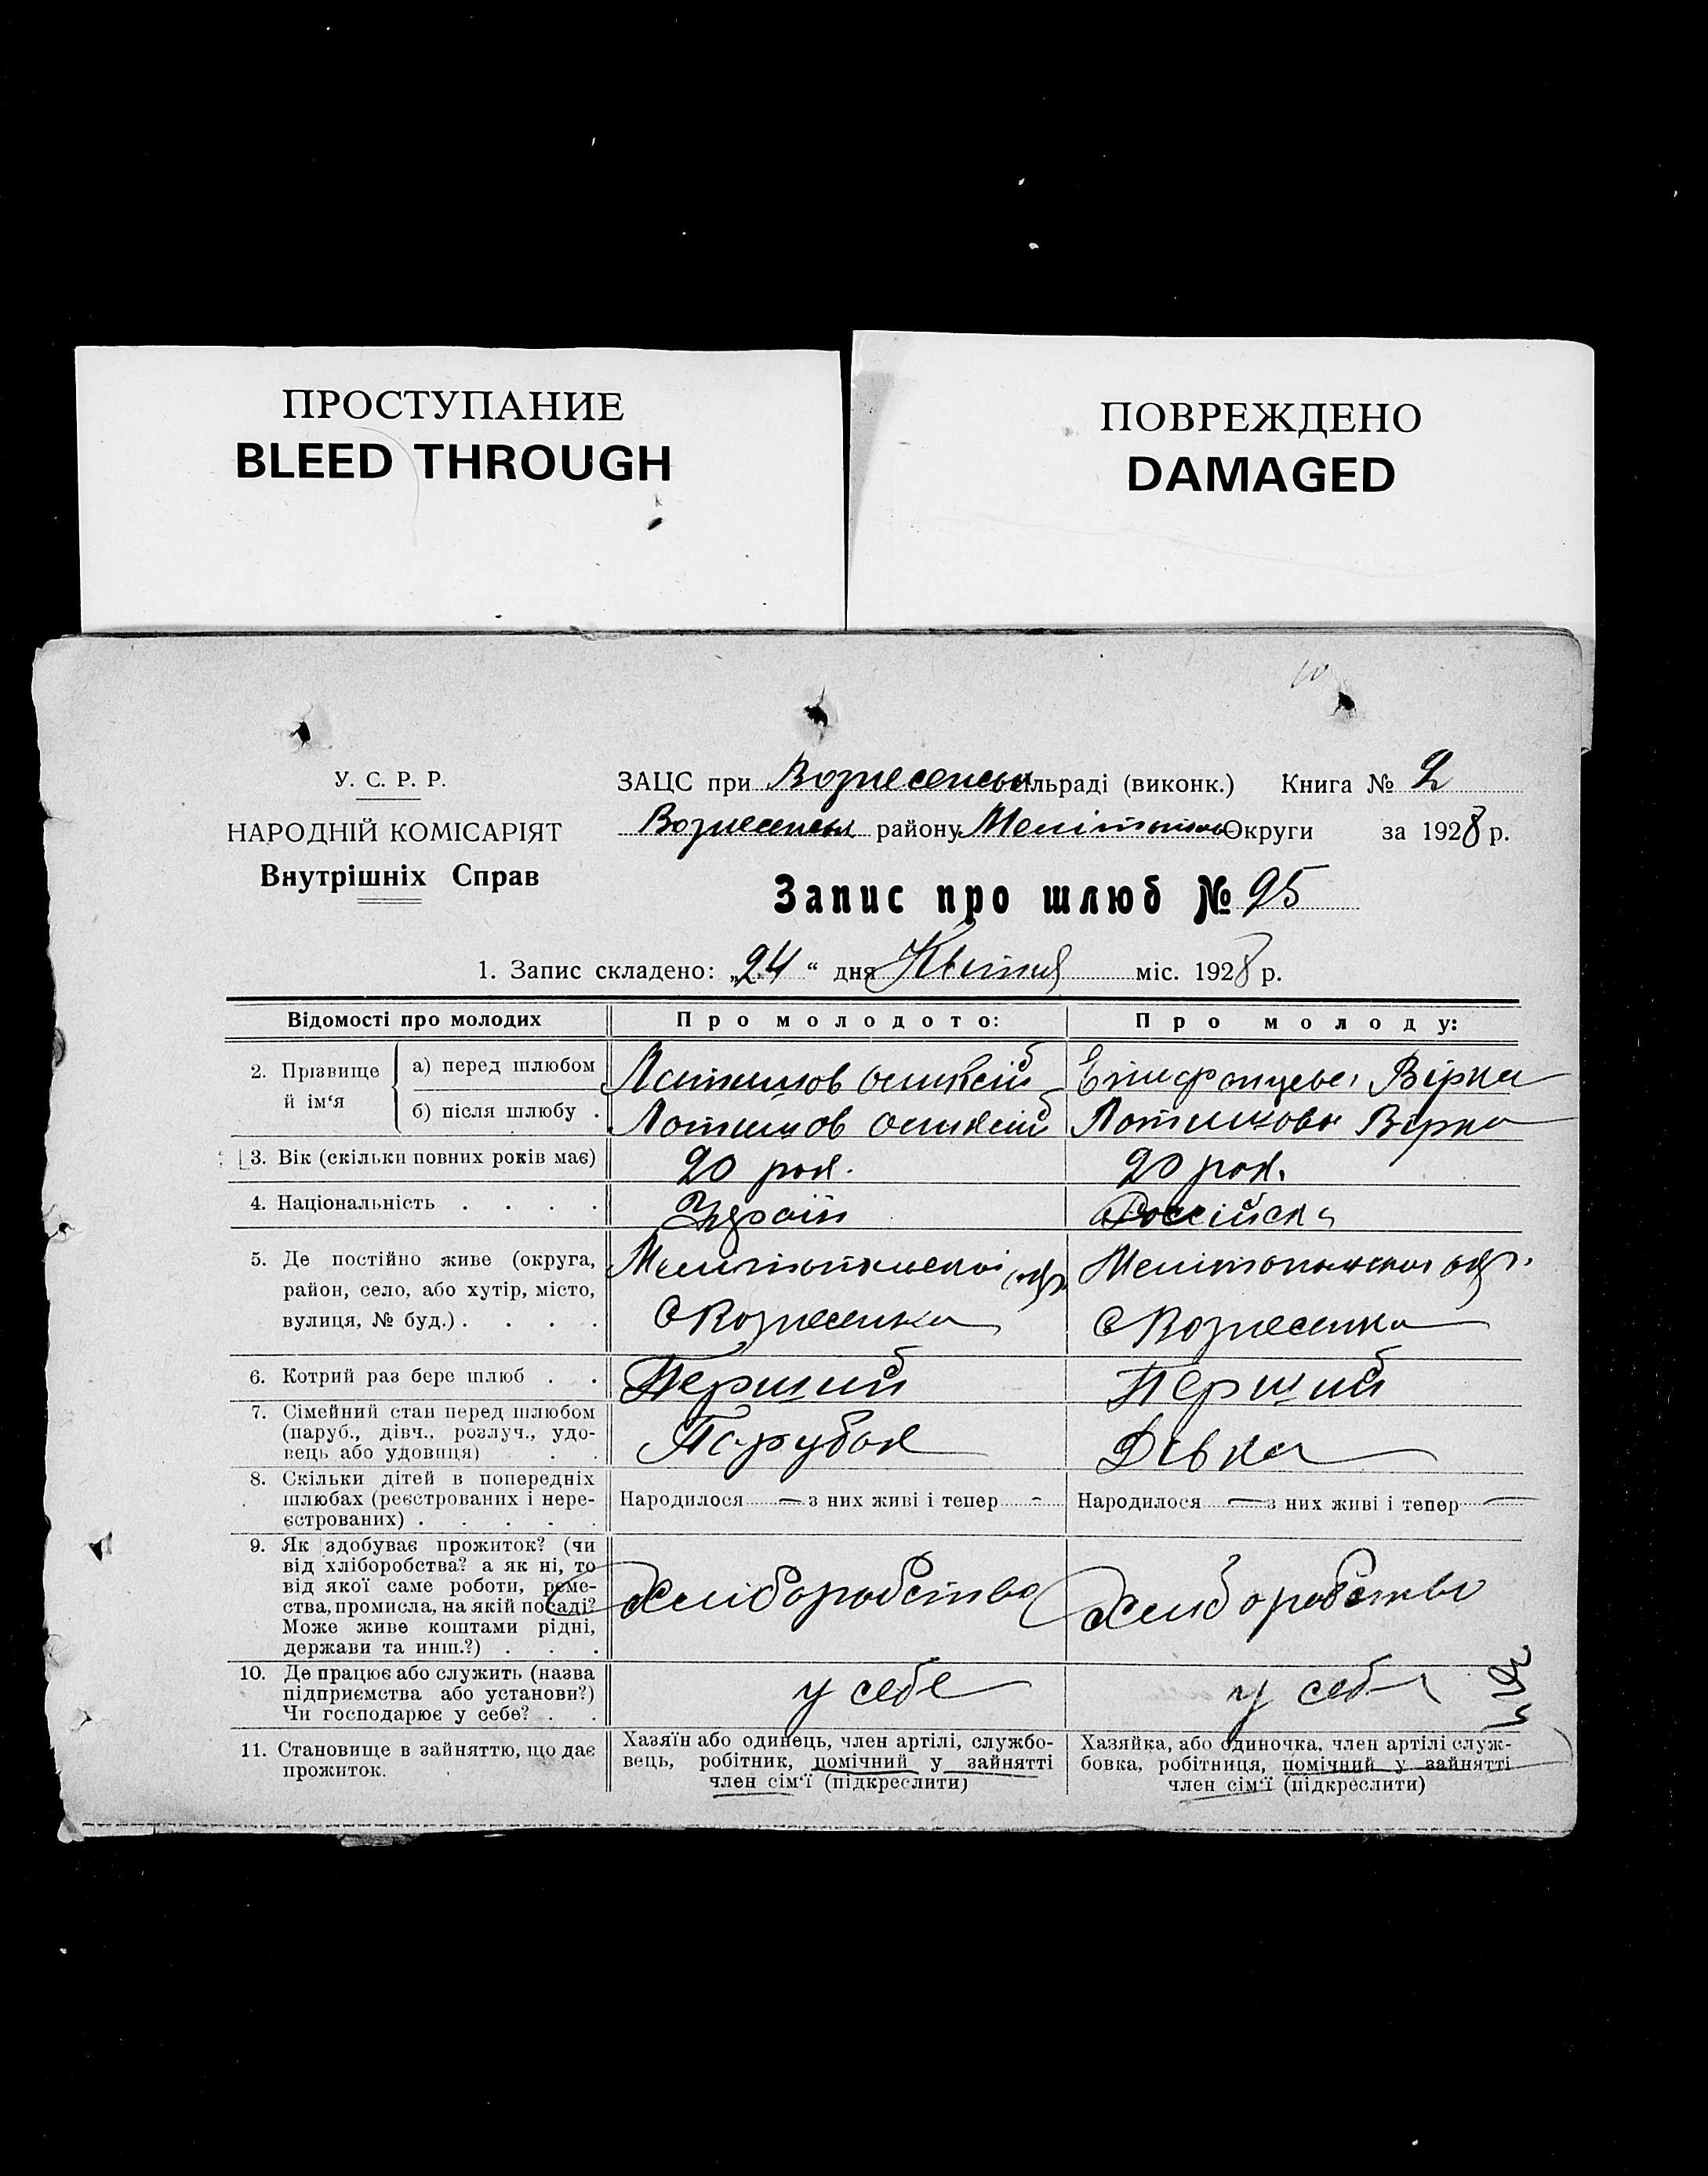 ПРОСТУПАНИЕ
BLEED THROUGH
ПОВРЕЖДЕНО
DAMAGED
У. С. Р. Р.
НАРОДНІЙ КОМІСАРІЯТ
Внутрішніх Справ
ЗАЦС при Вознесенськ сільраді (виконк.) Книга № 2
Вознесенськ району Округи за 1928 р.
Запис про шлюб № 95
1. Запис складено: „24“ дня Квітня міс. 1928 р.
Відомості про молодих
Про молодого:
Про молоду:
2. Прізвище й ім‘я
а) перед шлюбом
Вірка
б) після шлюбу .
Вірка
3. Вік (скільки повних років має)
20 рок.
20 рок.
4. Національність . . . .
Україн
Російска
5. Де постійно живе (округа,
район, село, або хутір, місто,
вулиця, № буд.) . . . .
С Вознесенка
С Вознесенка
6. Котрий раз бере шлюб . .
Перший
Перший
7. Сімейний стан перед шлюбом
(паруб., дівч., розлуч., удо-
вець або удовиця) . .
Парубок
Дівка
8. Скільки дітей в попередніх
шлюбах (реєстрованих і нере-
єстрованих) . . . . .
Народилося — з них живі і тепер -
Народилося — з них живі і тепер —
9. Як здобуває прожиток? (чи
від хліборобства? а як ні, то
від якої саме роботи, реме-
ства, промисла, на якій посаді?
Може живе коштами рідні,
держави та инш.?) . . .
Хліборобство
Хліборобство
10. Де працює або служить (назва
підприємства або установи?)
Чи господарює у себе? . .
у себе
у себе
11. Становище в зайняттю, що дає
прожиток.
Хазяїн або одинець, член артілі, службо-
вець, робітник, помічний у зайнятті
член сім‘ї (підкреслити)
Хазяйка, або одиночка, член артілі служ-
бовка, робітниця, помічний у зайнятті
член сім‘ї (підкреслити)